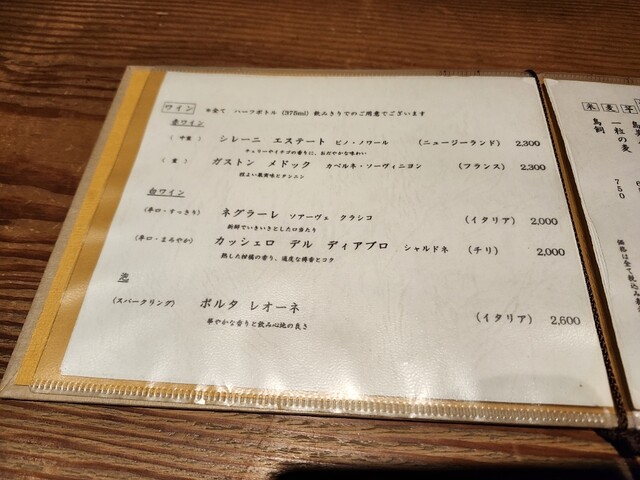 ワイン ※全て ハーフボトル (375ml) 飲みきりでのご用意でございます
赤ワイン
(中重) シレーニ エステート ピノ・ノワール (ニュージーランド) 2,300
チェリーやイチゴの香りに、おだやかな味わい
(重) ガストン メドック カベルネ・ソーヴィニヨン (フランス) 2,300
程よい果実味とタンニン
白ワイン
(辛口・すっきり) ネグラーレ ソアーヴェ クラシコ (イタリア) 2,000
新鮮でいきいきとした口当たり
(辛口・まろやか) カッシェロ デル ディアブロ シャルドネ (チリ) 2,000
熟した柑橘の香り、適度な樽香とコク
泡
(スパークリング) ポルタ レオーネ (イタリア) 2,600
華やかな香りと飲み心地の良さ
米 麦 芋
一粒の麦 750
鳥飼
価格は全て税込み